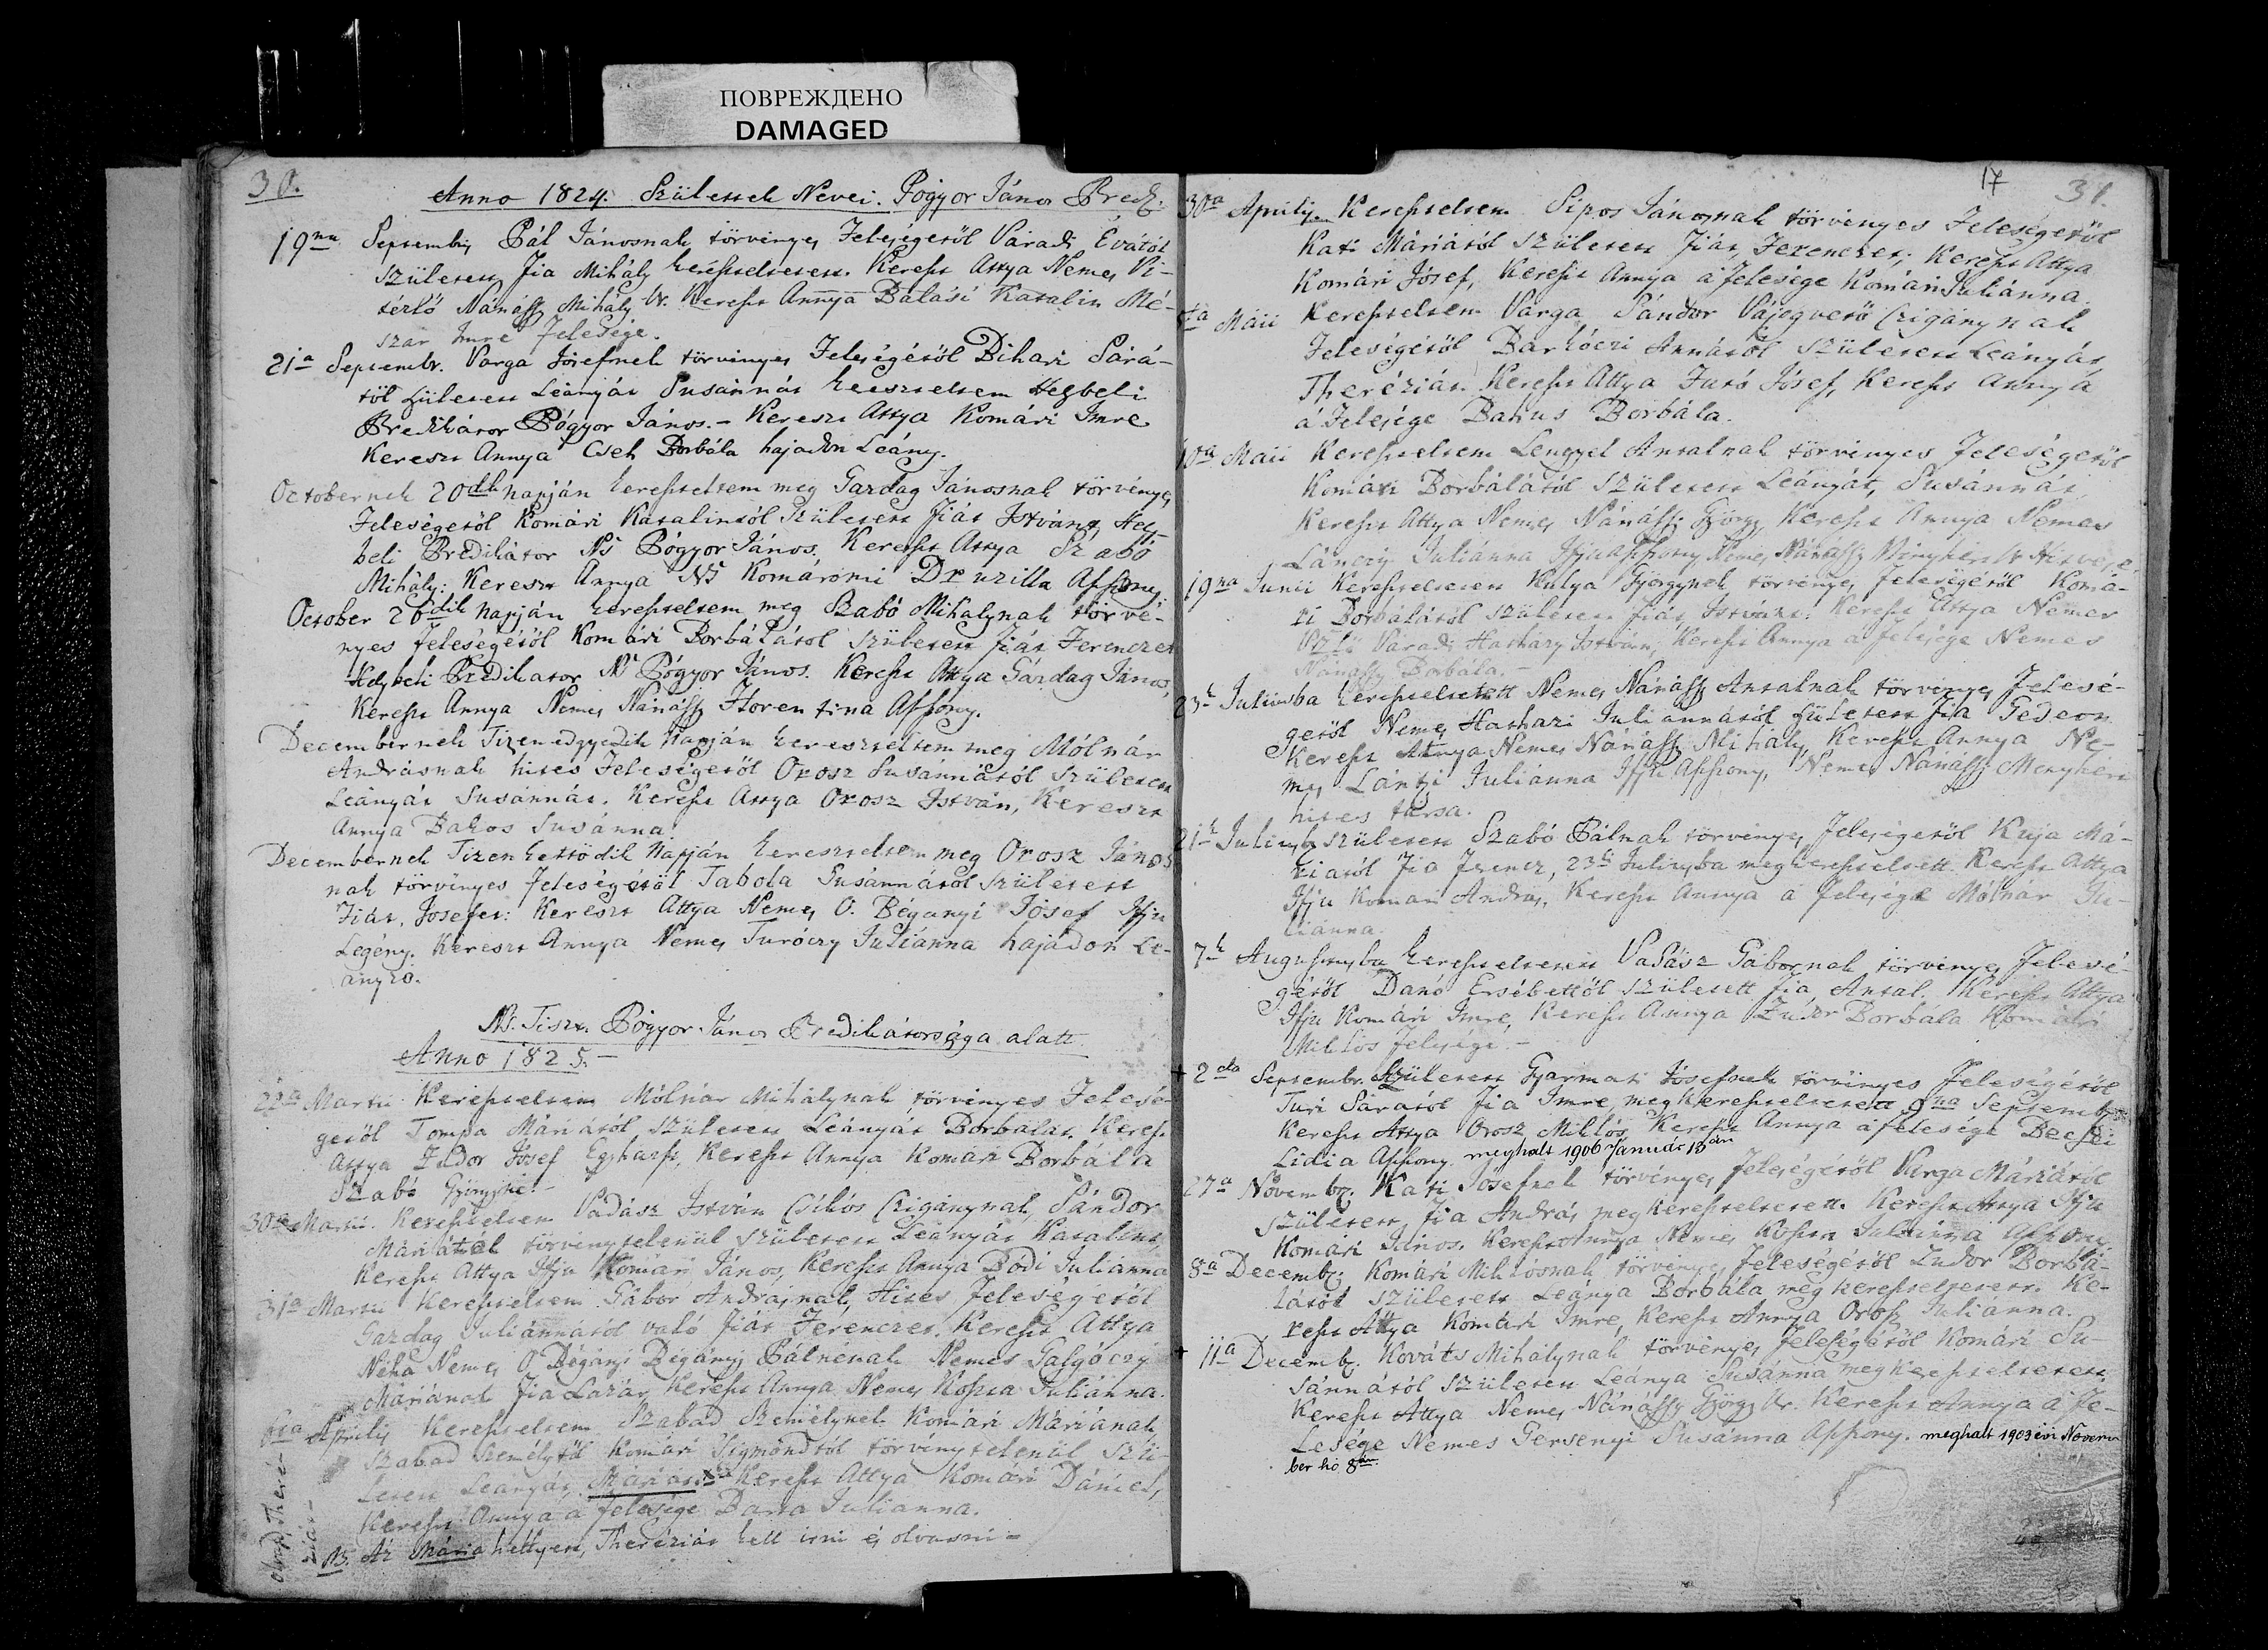 ПОВРЕЖДЕНО
DAMAGED
30.
Anno 1824. Születtek Nevei. Pógyor János Préd.
19na Septembris Pál Jánosnak törvényes Feleségétöl Váradi Évától
született Fia Mihály kereszteltetett. Kereszt Attya Nemes Vi-
tézlö Nánássy Mihály Ur. Kereszt Annya Balási Katalin Mé-
szár Imre Felesége.
21a Septembr. Varga Jósefnek törvényes Feleségétöl Bihari Sárá-
tól született Leányát Susánnát kereszteltem Helybeli
Predikátor Pógyor János. - Kereszt Attya Komári Imre
Kereszt Annya Cseh Borbála hajadon Leány.
Octobernek 20dik napján kereszteltem meg Gazdag Jánosnak törvényes
Feleségétöl Komári Katalintól Született Fiát Istvánt, Hely-
beli Predikátor Ns Pógyor János. Kereszt Attya Szabó
Mihály: Kereszt Annya Ns Komáromi Druzilla Asszony.
October 26dik napján kereszteltem meg Szabó Mihálynak törvé-
nyes feleségétöl Komári Borbálától született fiát Ferenczet
Helybeli Predikator Ns Pógyor János. Kereszt Attya Gazdag János,
Kereszt Annya Nemes Nánássy Florentina Asszony.
Decembernek Tizenedgyedik Napján kereszteltem meg Mólnár
Andrásnak hites Feleségétöl Orosz Susánnától született
Leányát Susánnát. Kereszt Attya Orosz István, Kereszt
Annya Bakos Susánna.
Decembernek Tizenkettödik Napján kereszteltem meg Orosz János
nak törvényes Feleségétöl Tabola Susánnától született
Fiát, Josefet: Kereszt Attya Nemes O. Bégányi Jósef Ifju
Legény. Kereszt Annya Nemes Turóczy Juliánna hajadon Le-
ányzó.
Ns. Tiszt. Pógyor János Predikátorsága alatt
Anno 1825.
22a Martii Kereszteltem Mólnár Mihálynak törvényes Felesé-
gétöl Tompa Máriától született Leányát Borbálát. Kereszt
Attya Zudor Jósef Egyházfi, Kereszt Annya Komári Borbála
Szabó Györgyné. -
30a Martii. Kereszteltem Vadász István Csikós Czigánynak, Sándor
Máriától törvénytelenül született Leányát Katalint,
Kereszt Attya Ifju Komári János, Kereszt Annya Bódi Julianna
31a Martii Kereszteltem Gábor Andrásnak, Hites Feleségétöl
Gazdag Juliánnától való fiát Ferenczet. Kereszt Attya
Néhai Nemes O Bégányi Bégányi Pálnénak Nemes Galgóczy
Máriának Fia Lázár, Kereszt Annya Nemes Kossa Juliánna.
6ta Aprilis Kereszteltem Szabad Személynek Komári Máriának,
Szabad Személytöl Komári Sigmondtól törvénytelenül Szü-
letett Leányát, Máriát. Kereszt Attya Komári Dániel,
Kereszt Annya a felesége Barta Julianna.
NB. Az Mária hellyett, Theréziát kell irni és olvasni =
olvasd, Theré-
ziát -
17 31.
30a Aprilis Kereszteltem Sipos Jánosnak törvényes Feleségétöl
Kati Máriától született Fiát, Ferenczet; Kereszt Attya
Komári Jósef, Kereszt Annya a felesége Komári Juliánna.
Máii Kereszteltem Varga Sándor Vájogvetö Czigánynak
Feleségétöl Barkóczi Annától született Leányát
Theréziát. Kereszt Attya Jutó Jósef, Kereszt Annya
á Felesége Bakus Borbála.
10a Maii Kereszteltem Lengyel Antalnak törvényes Feleségétöl
Komári Borbálától Született Leányát, Susánnát
Kereszt Attya Nemes Nánássy György, Kereszt Annya Nemes
Lánczy Juliánna Ifju Asszony Nemes Nánássy Menyhért Hitvese
19na Junii Kereszteltetett Kulya Györgynek törvényes feleségétöl Komá-
ri Borbálától született Fiát, Istvánt: Kereszt Attya Nemes
Váradi Hatházy István, Kereszt Annya a felesége Nemes
Nánássy Borbála. -
23k Juliusba kereszteltetett Nemes Nánássy Antalnak törvényes Felesé-
gétöl Nemes Hathazi Juliannától született fia Gedeon
Kereszt Attya Nemes Nánássy Mihály, Kereszt Annya Ne-
mes Lántzi Juliánna Ifju Asszony, Nemes Nánássy Menyhért
hites társa.
21k Juliusba született Szabó Pálnak törvényes Feleségétöl Kuja Má-
riától Fia Ferencz, 23k Juliusba megkereszteltett. Kereszt Attya
Ifju Komári András, Kereszt Annya á felesége Mólnár Ju-
liánna.
7k Augustusba kereszteltetett Vadász Gábornak törvényes Felesé-
gétöl Danó Ersébettöl született fia, Antal. Kereszt Attya
Ifju Komári Imre, Kereszt Annya Zudor Borbála Komári
Miklós felesége. -
+ 2da Septembr. Született Gyarmati Jósefnek törvényes Feleségétöl
Turi Sárától Fia Imre, megkereszteltetett 9na Septembr
Kereszt Attya Orosz Miklós, Kereszt Annya a felesége Becsei
Lidia Asszony. meghalt 1906 Január 13án
27a Novembr. Kati Jósefnek törvényes Feleségétöl Varga Máriától
született fia András megkereszteltetett. Kereszt Attya Ifju
Komári János. Kereszt Annya Nemes Kossa Juliánna Asszony
8a Decembr. Komári Miklósnak törvényes Feleségétöl Zudor Borbá-
lától született Leánya Borbála megkereszteltetett. Ke-
reszt Attya Komári Imre, Kereszt Annya Orosz Juliánna.
+ 11a Decembr. Kováts Mihálynak törvényes feleségétöl Komári Su-
sánnától született Leánya Susánna megkereszteltetett.
Kereszt Attya Nemes Nánássy György Ur. Kereszt Annya á Fe-
lesége Nemes Gersenyi Susánna Asszony. meghalt 1903 évi Novem
ber hó 8án.